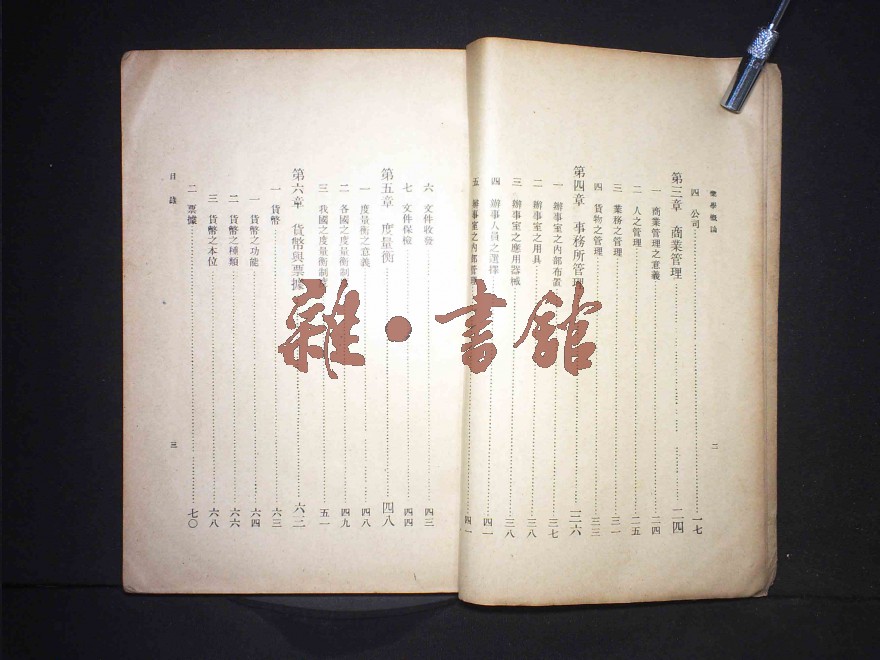 商學概論
四　公司……一七
第三章　商業管理……二四
一　商業管理之意義……二四
二　人之管理……二五
三　業務之管理……三一
四　貨物之管理……三三
第四章　事務所管理……三六
一　辦事室之內部布置……三七
二　辦事室之用具……三八
三　辦事室之應用器械……三八
四　辦事人員之選擇……四一
五　辦事室之內部管理……四一
二
六　文件收發……四三
七　文件保檔……四四
第五章　度量衡……四八
一　度量衡之意義……四八
二　各國之度量衡制……四九
三　我國之度量衡制度……五一
第六章　貨幣與票據……六三
一　貨幣……六三
一　貨幣之功能……六四
二　貨幣之種類……六六
三　貨幣之本位……六八
二　票據……七〇
目錄
三
雜·書舘